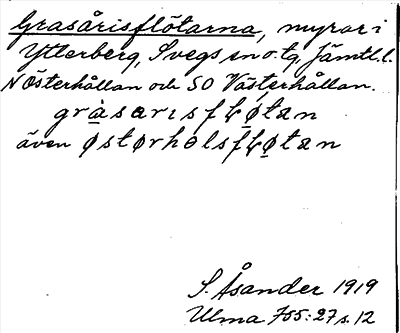 Grasårisflötarna, myrar i
Ytterberg, Svegs sn o. tg, Jämtl. l.
N Österhållan och SO Västerhållan.
gràsarısfłø̀tan
även østørholsfłø̀tan
S. Åsander 1919
Ulma 755:27 s. 12